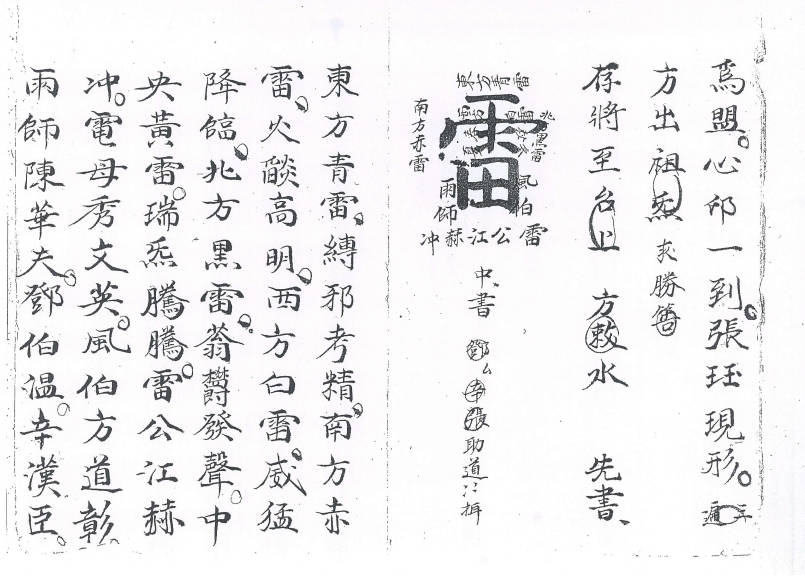 為盟。心印一到。張珏現形。三遍
方出祖炁求勝
存將至台上方敕水先書
東方青雷
南方赤雷
雷
風伯
雨師
雷公江赫冲
中書
鄧辛張助道
東方青雷。縛邪考精。南方赤
雷。火燄高明。西方白雷。威猛
降臨。北方黑雷。蓊欝發聲。中
央黃雷。瑞炁騰騰。雷公江赫
冲。電母秀文英。風伯方道彰。
雨師陳華夫。鄧伯溫。辛漢臣。